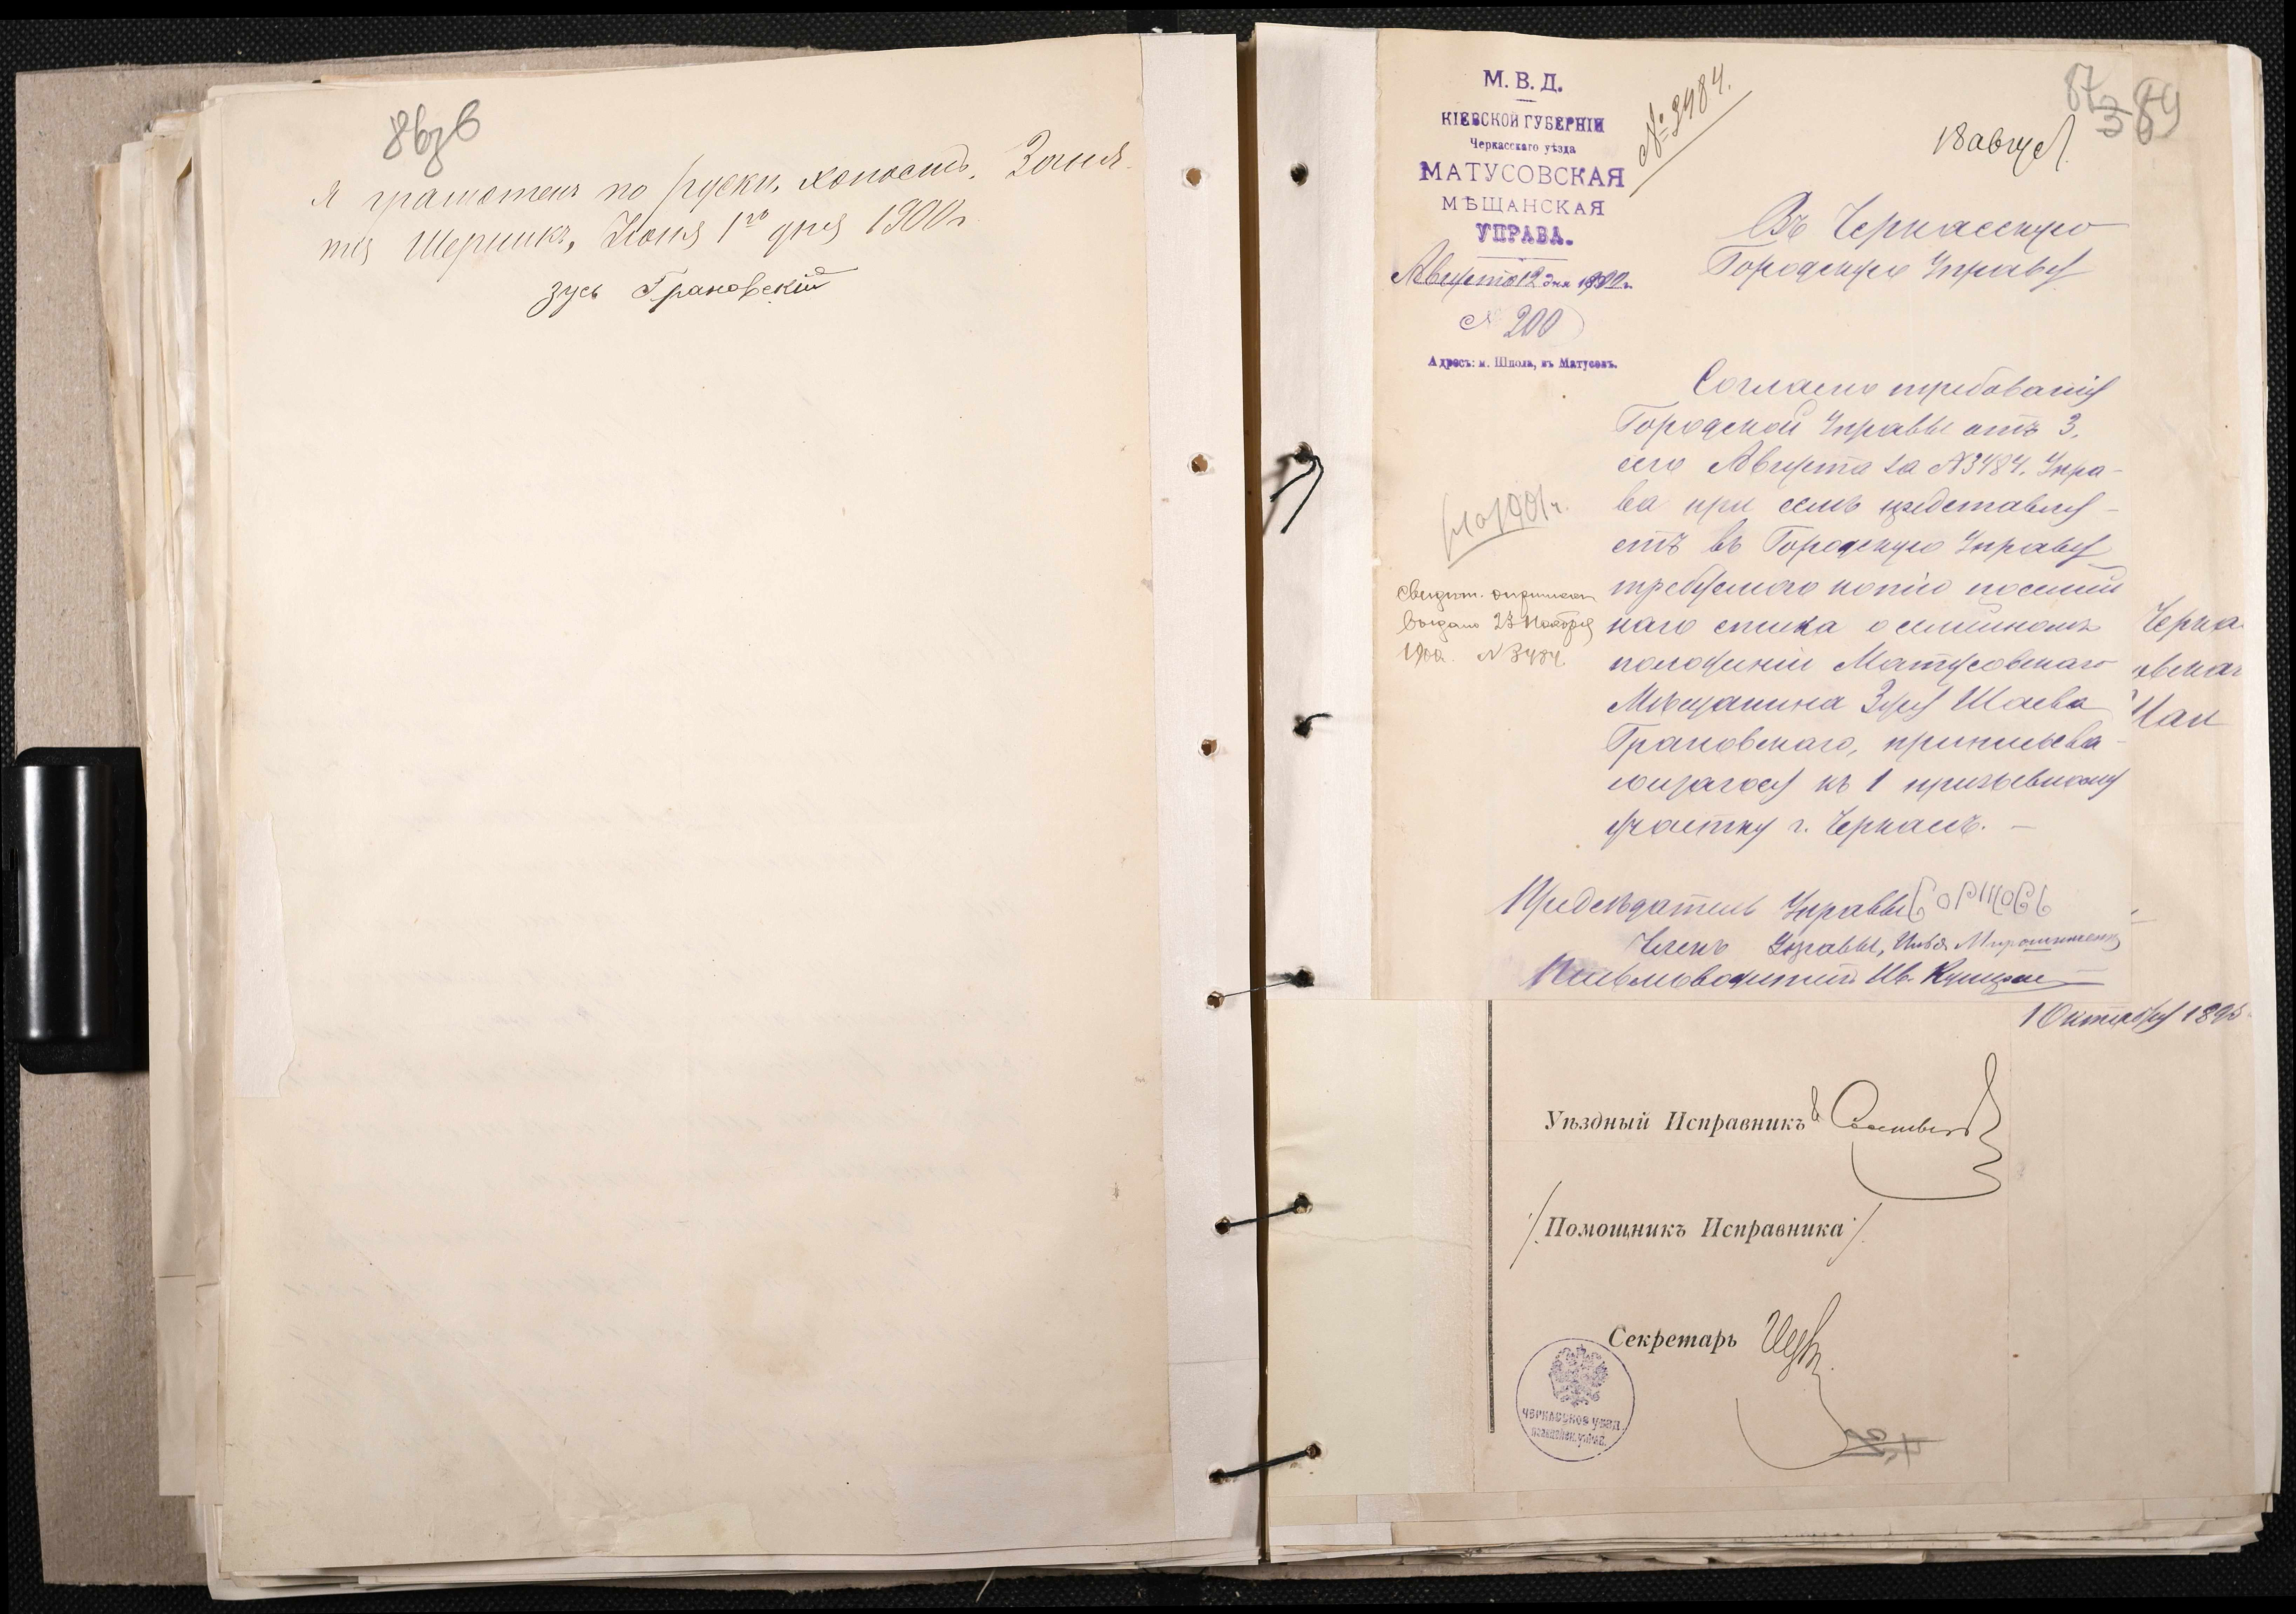 86зв
Я грамотенъ по руски, холостъ. Заня-
тія Шерникъ, Июня 1го дня 1900 г
зусь Грановскій
М. В. Д.
КІЕВСКОЙ ГУБЕРНІИ
Черкасскаго уѣзда
МАТУСОВСКАЯ
МѢЩАНСКАЯ
УПРАВА.
Августа 12 дня 1900 г.
№ 200
Адресъ: м. Шпола, въ Матусовъ.
№ 3484.
18 авгус.
87
89
Въ Черкасскую
Городскую Управу
Согласно требованія
Городской Управы отъ 3,
сего Августа за №3484. Упра-
ва при семъ представля-
етъ въ Городскую Управу
требуемого копію посемей
наго списка о семейномъ
положеніи Матусовскаго
Мѣщанина Зуся Шаева
Грановскаго, приписыва-
ющагося къ 1 призывному
участку г. Черкасъ. —
на 1901 г.
Свидѣт. о приписки
выдано 23 Ноября
1900. №3484.
Предсѣдатель Управы
Членъ Управы, Илья Мирошниченко
Письмоводитель Ив.
Черка
Чан
1 Октября 189
Уѣздный Исправникъ
Помощникъ Исправника
Секретарь
ЧЕРКАССКОЕ УѢЗД.
ПОЛИЦЕЙСК. УПРАВ.